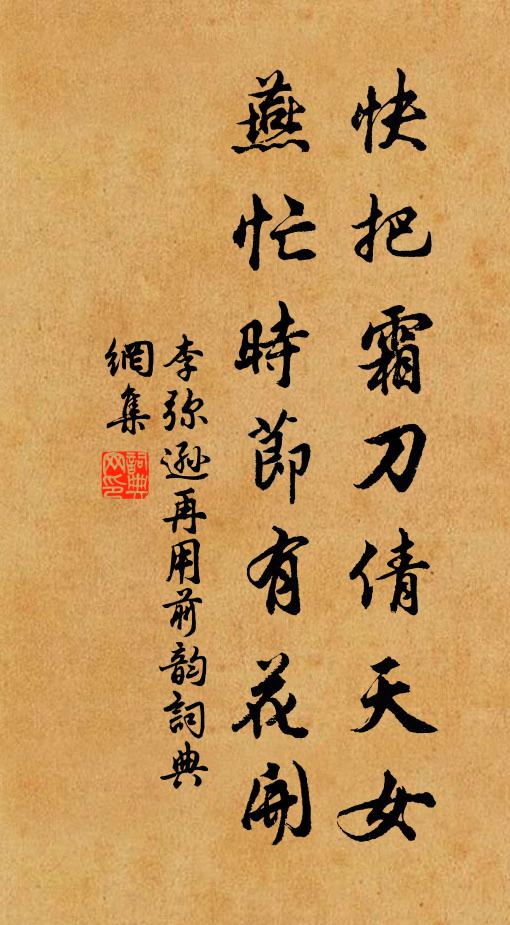 快把霜刀倩天女
燕忙時節有花開
李弥遜再用前韵詞典
網集
詞典網印